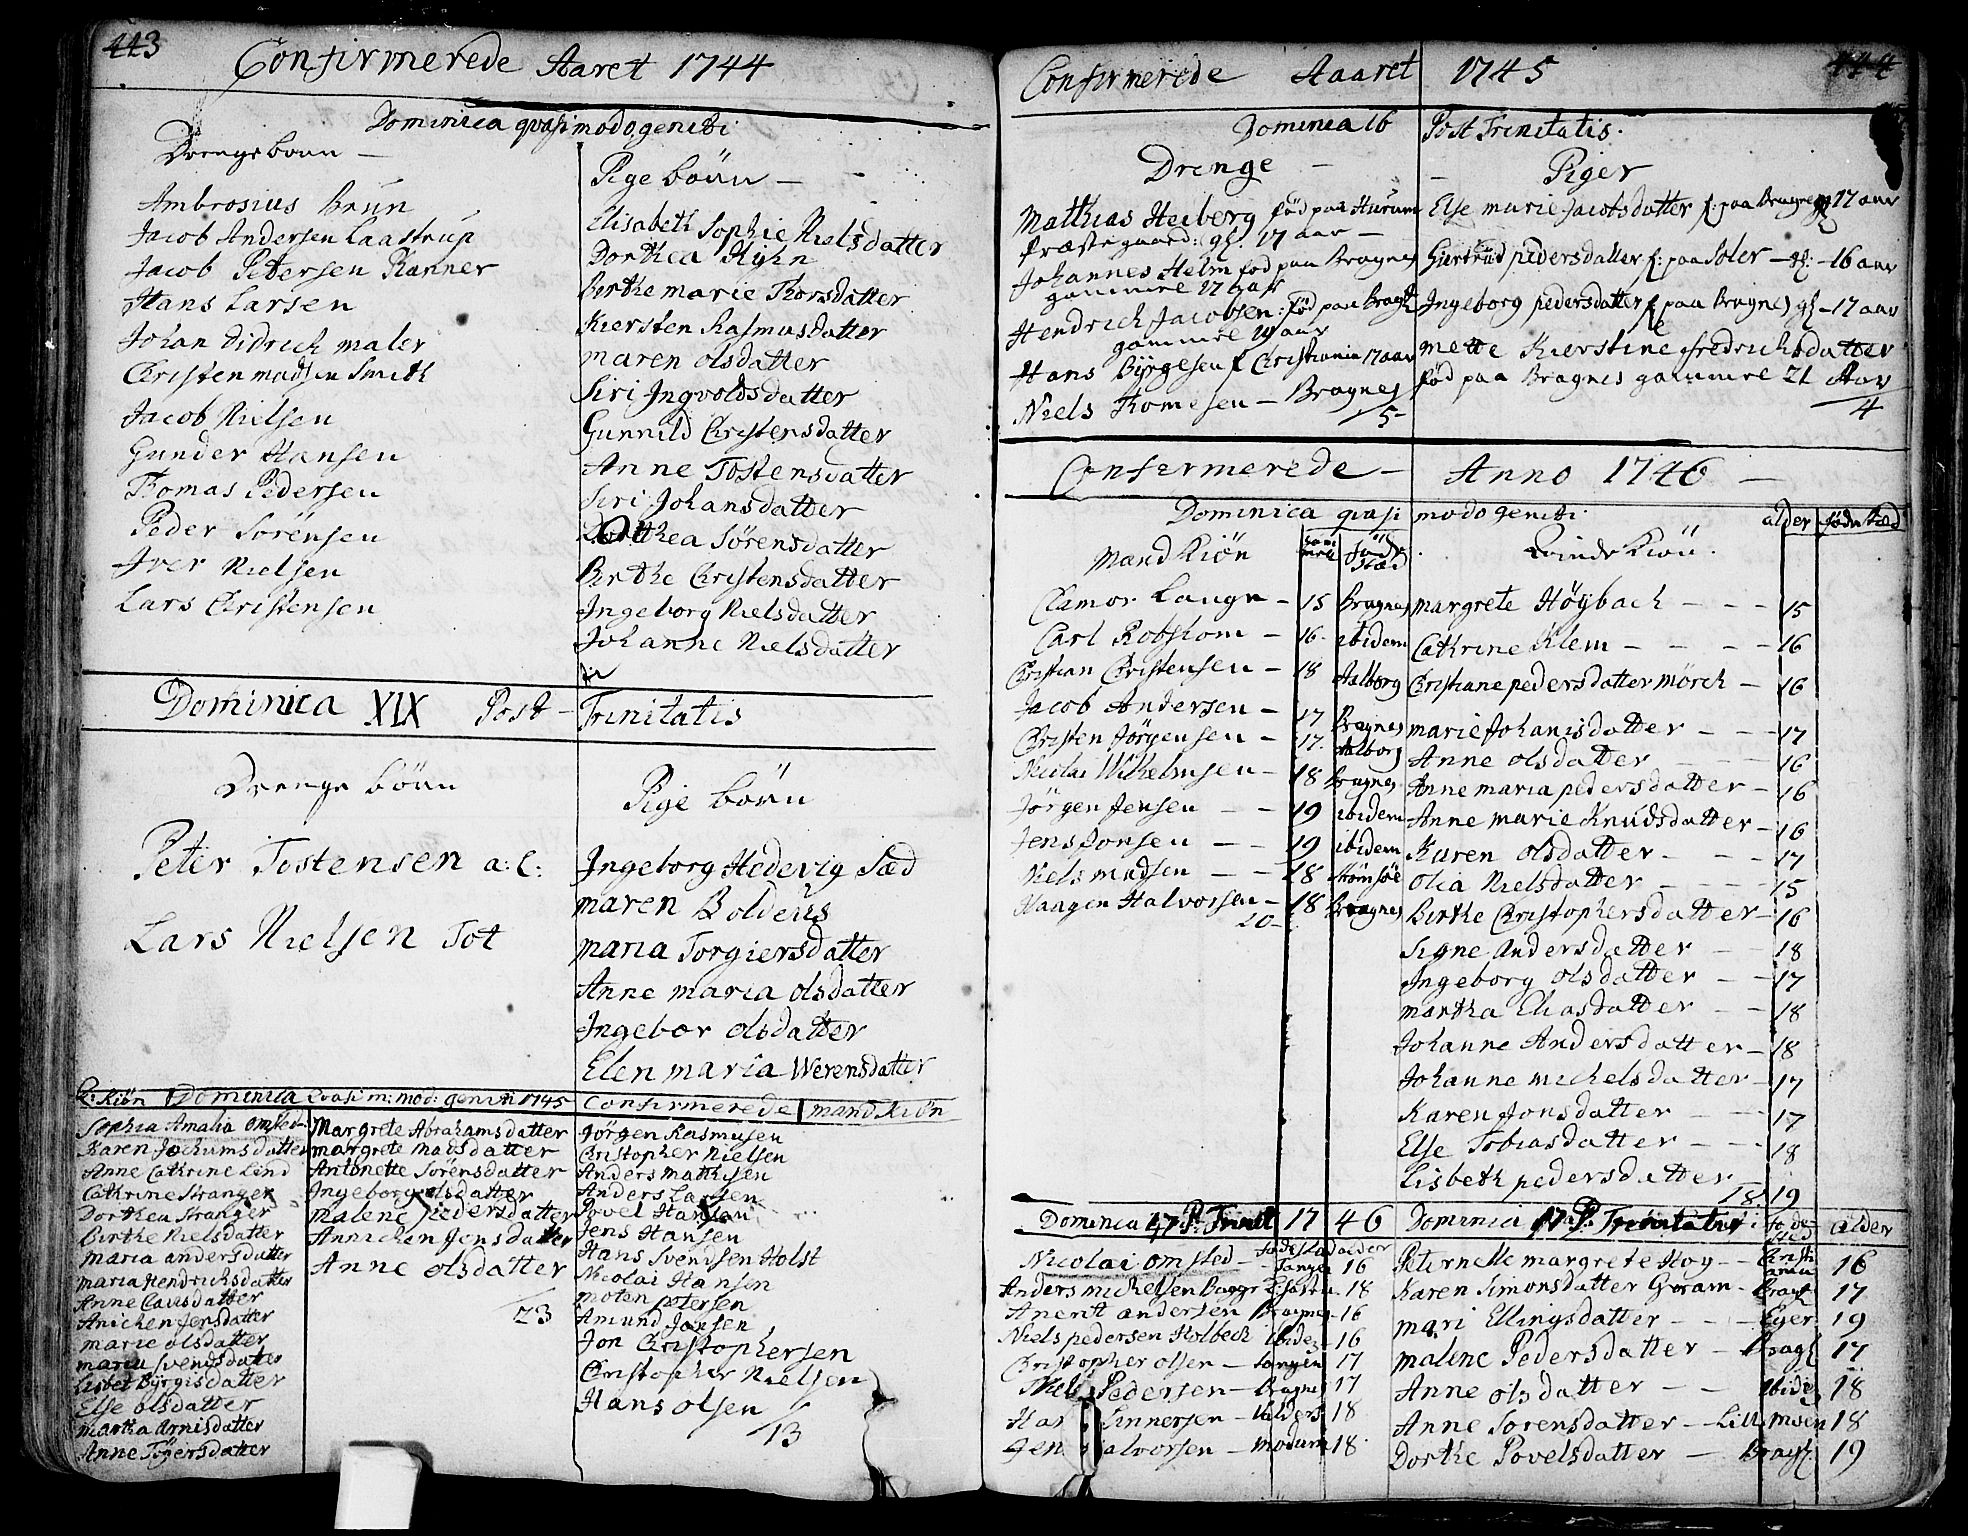 443
Confirmerede Aaret 1744
Dominica qvasimodogeniti
Drengebørn —
Ambrosius Brun
Jacob Andersen Laastrup
Jacob Petersen Kanner
Hans Larsen
Johan Didrich maler
Christen madsen Smith
Jacob Nielsen
Gunder Hansen
Thomas Pedersen
Peder Sörensen
Iver Nielsen
Lars Christensen
Pige börn —
Elisabeth Sophie Nielsdatter
Dorthea Kyhn
Birthe marie Thorsdatter
Kiersten Rasmusdatter
maren olsdatter
Siri Ingvoldsdatter
Gunnild Christensdatter
Anne Tostensdatter
Siri Johansdatter
Dorthea Sörensdatter
Birthe Christensdatter
Ingeborg Nielsdatter
Johanne Nielsdatter
Dominica XIX Post — Trinitatis
Drenge börn
Peter Tostensen a: l:
Lars Nielsen Tot
Pige börn
Ingeborg Hedevig Sæd
maren Boldeus
maria Torgiersdatter
Anne maria olsdatter
Ingebor olsdatter
Elen maria Werensdatter
Q: Kiön Dominica qvasi m: mod: geniti 1745 Confirmerede mand Kiön
Sophia Amalia omsted
Karen Jochumsdatter
Anne Cathrine Lind
Cathrine Stranger
Dorthea Stranger
Birthe Nielsdatter
Maria andersdatter
maria Hendrichsdatter
Anne Larsdatter
Anichen Jensdatter
marie olsdatter
maria Svensdatter
Lisbet Byrgisdatter
Else olsdatter
martha Arnisdatter
Anne Töyersdatter
Margrete Abrahamsdatter
margrete madsdatter
Antonette Sörensdatter
Ingeborg olsdatter
Malene Pedersdatter
Annichen Jonsdatter
Anne olsdatter
23
Jörgen Rasmusen
Christopher Nielsen
Anders Mathisen
Anders Larsen
Povel Hansen
Jens Hansen
Hans Svendsen Holst
Nicolai Hansen
moten petersen
Amund Jonsen
Jon Christophersen
Christopher Nielsen
Hans olsen
13
444
Confirmerede Aaaret 1745
Dominica 16 Post Trinitatis.
Drenge —
Matthias Heiberg född paa Hurum
Præstegaard: gl. 17 aar —
Johannes Helm fod paa Bragnes
gammel 17 aar
Hendrich Jacobsen: född paa Bragn
gammel 19 aar
Hans Byrgesen f Christiania 17 aar
Niels Thomesen — Bragnes
5
— Piger
Else marie Jacobsdatter f: paa Bragnes gl 17 aar
Giertrüd pedersdatter f: paa Soler — gl: — 16 aar
Ingeborg pedersdatter f paa Bragnes gl — 17 aar
mette Kierstine fredrichsdatter
född paa Bragnes gammel 21 Aar
4
Confermerede — Anno 1746 —
Dominica qvasi modogeniti
mand Kiön gam mel föde stæd
Clamor Lange — 15 Bragnes
Carl RobsHom — 16 ibidem
Christian Christensen — 18 Aalborg
Jacob Andersen — 17 Bragnes
Christen Jörgensen — 17 Aalborg
Nicolai Wilhelmsen — 18 Bragnes
Jörgen Jensen — — 19 ibidem
Jens Jonsen — — 19 ibidem
Niels madsen — — 18 Strömsöe
Haagen Halvorsen — 18 Bragnes
10
Qvinde Kiön. alder födestæd
margrete Höybach — — — 15
Cathrine Klem — — — 16
Christiane pedersdatter mörch — 16
marie Johanisdatter — — 17
Anne olsdatter — — — 16
Anne maria pedersdatter — 16
Anne marie Knudsdatter — 16
Karen olsdatter — — — 17
Olia Nielsdatter — — — 15
Birthe Christophersdatter — 16
Signe Andersdatter — 18
Ingeborg olsdatter — — 17
martha Eliasdatter — — 18
Johanne Andersdatter — 18
Johanne michelsdatter — 17
Karen Jonsdatter — — 17
Else Tobiasdatter — — 18
Lisbeth pedersdatter 19
18
Dominica 17 P: Trinit 1746
födestad alder
Nicolai omsted — Tangen 16
Anders michelsen Bagger 18
Anentt andersen Bragnes 16
Niels pedersen Holbech ibidem 16
Christopher olsen — Tangen 17
Niels Pedersen — Bragnes 17
Sinnersen — Valders 18
Jen Halvorsen — modum 18
Dominici 17 P: Trinitatis födested alder
Peternelle margrete Hoy — Christiania 16
Karen Simonsdatter Goram — Bragn 17
mari Ellingsdatter — — Eger 19
malene Pedersdatter — Bragn 17
Anne olsdatter — — ibide 18
Anne Sorensdatter — Lill 18
Dorthe Povelsdatter — Bragn: 19